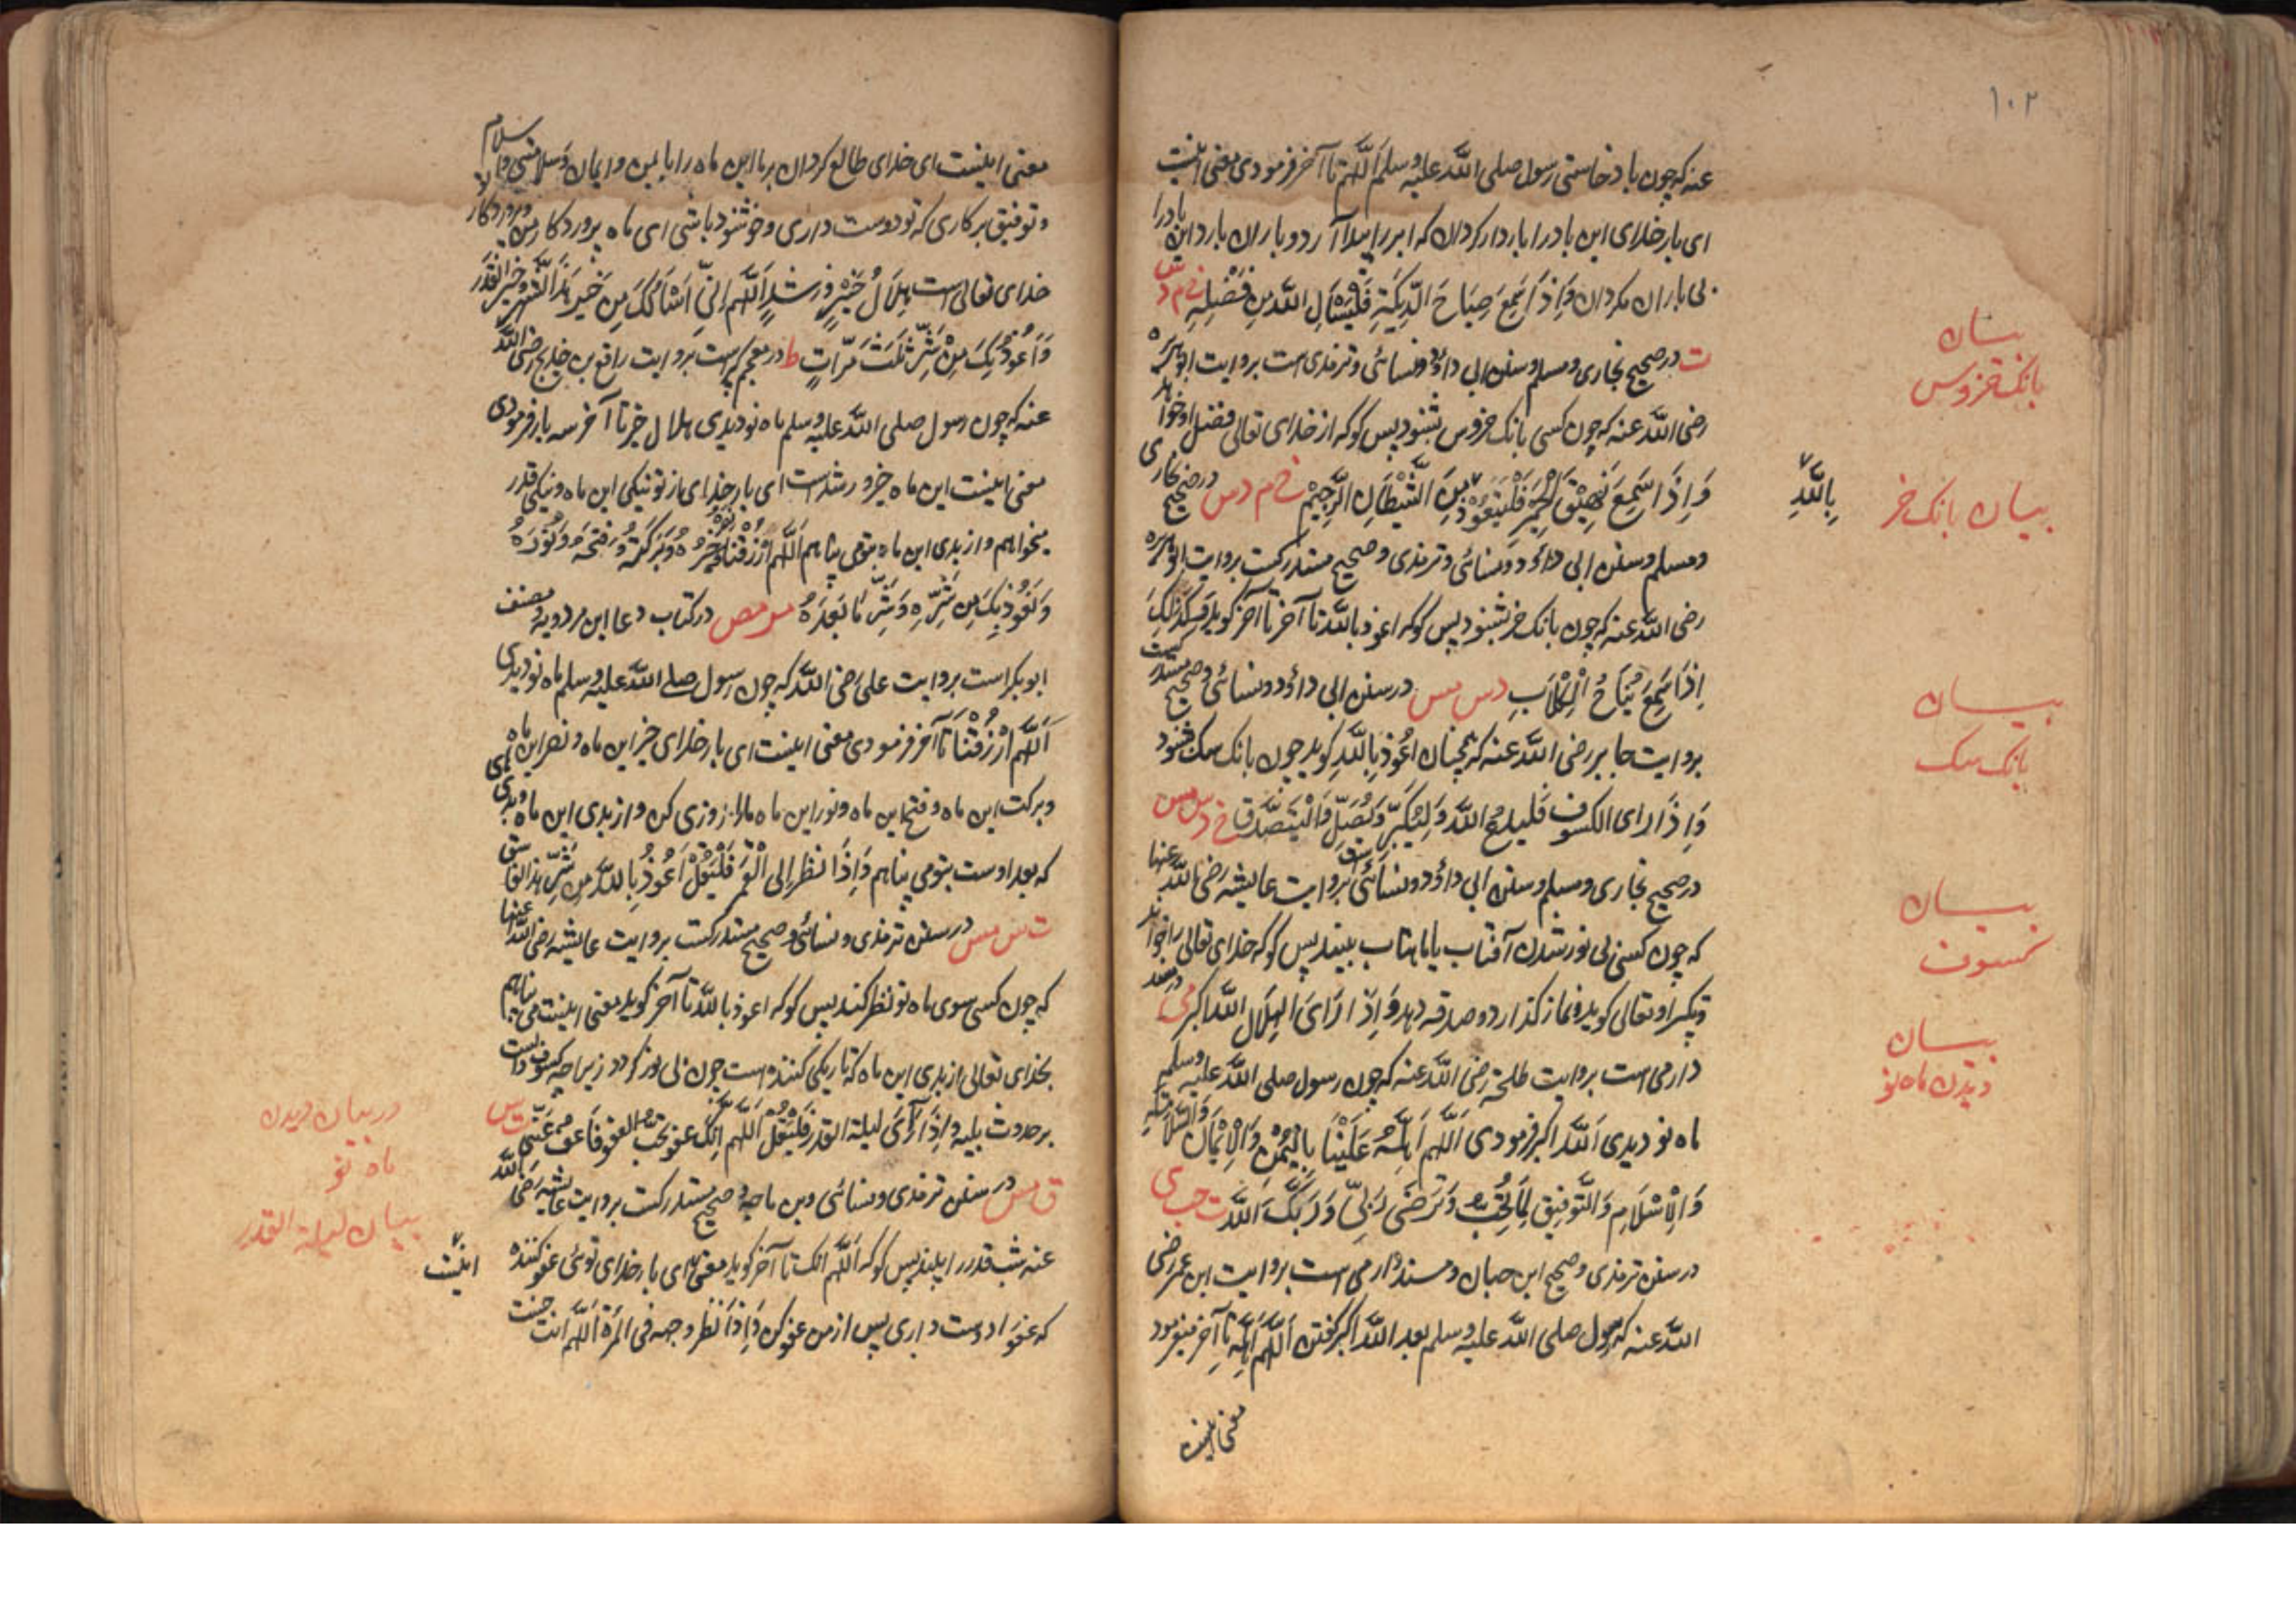 ١٠٢
عنه که چون باد خاستی رسول صلی الله علیه وسلم اللهم تا آخر فرمودی معنی اینست
ای بار خدای این باد را باردار کردان که ابر را پیدا آرد و باران بارد این باد را
بی باران مکردان وَاِذَا سَمِعَ صِیَاحَ الدِّیَکَةِ فَلْیَسْأَلِ اللهَ مِن فَضْلِهِ خ م د س
ت در صحیح بخاری و مسلم و سنن ابی داؤد و نسائی و ترمذی است بروایت ابو هریره
رضی الله عنه که چون کسی بانک خروس بشنود پس کو که از خدای تعالی فضل او خواهد
وَاِذَا سَمِعَ نَهِیْقَ الْحَمِیْرِ فَلْیَتَعَوَّذْ مِنَ الشَّیْطَانِ الرَّجِیْمِ خ م د س در صحیح بخاری
و مسلم و سنن ابی داؤد و نسائی و ترمذی و صحیح مستدرکست بروایت ابو هریره
رضی الله عنه که چون بانک خر بشنود پس کو که اعوذ بالله تا آخر تا آخر کوید وَکَذَلِکَ
اِذَا سَمِعَ نُبَاحَ الْکِلَابِ د س مس در سنن ابی داؤد و نسائی و صحیح مستدرکست
بروایت جابر رضی الله عنه که همچنان اَعُوذ بِاللهِ کوید چون بانک سک شنود
وَاِذَا رای الکسوف فَلیدعُ اللهَ وَلیُکَبِّر وَلیُصَلِّ وَالْیَتَصَدَّق خ م د س مس
در صحیح بخاری و مسلم و سنن ابی داؤد و نسائی بروایت عایشه رضی الله عنها
که چون کسی بی نور شدن آفتاب یا ماهتاب ببیند پس کو که خدای تعالی را خواند
و تکبیر او تعالی کوید و نماز کذارد و صدقه دهد وَاِذَا رَایَ الْهِلَال الله اکبر می در مسند
دارمی است بروایت طلحه رضی الله عنه که چون رسول صلی الله علیه وسلم
ماه نو دیدی الله اکبر فرمودی اَللّٰهُمَّ اَهِلَّهُ عَلَیْنَا بِالْیُمْنِ وَالْاِیْمَانِ وَالسَّلَامَةِ
وَالْاِسْلَامِ وَالتَّوْفِیقِ لِمَا تُحِبُّ وَتَرْضَی رَبِّی وَرَبُّکَ اللهُ ت حب می
در سنن ترمذی و صحیح ابن حبان و مسند دارمی است بروایت ابن عمر رضی
الله عنه که رسول صلی الله علیه وسلم بعد الله اکبر کفتن اللهم اهله تا آخر میفرمود
معنی اینست
بیان
بانک خروس
بِاللهِ
بیان بانک خر
بیان
بانک سک
بیان
کسوف
بیان
دیدن ماه نو
معنی اینست ای خدای طالع کردان بر ما این ماه را با یمن و ایمان و سلامتی و با سلام
و توفیق بر کاری که تو دوست داری و خوشنود باشی ای ماه پروردکار من و پروردکار تو
خدای تعالی است هِلَالُ خَیْرٍ وَ رُشْدٍ اَللّٰهُمَّ اِنِّی اَسْاَلُکَ مِن خَیرِ هٰذَا الشَّهْرِ وَخَیْرِ الْقَدَرِ
وَاَعُوذُ بِکَ مِنْ شَرِّهِ ثَلٰثَ مَرَّاتٍ ط در معجم کبیرست بروایت رافع بن خدیج رضی الله
عنه که چون رسول صلی الله علیه وسلم ماه نو دیدی هلال خیر تا آخر سه بار فرمودی
معنی اینست این ماه خیر و رشد است ای بار خدای از تو نیکی این ماه و نیکی قدر
میخواهم و از بدی این ماه بتو می پناهم اَللّٰهُمَّ ارْزُقْنَا خَیْرَهُ وَنَصْرَهُ وَبَرَکَتَهُ وَفَتْحَهُ وَنُوْرَهُ
وَنَعُوْذُ بِکَ مِن شَرِّهِ وَشَرِّ مَا بَعْدَهُ مو مص در کتاب دعا ابن مردویه و مصنف
ابو بکر است بروایت علی رضی الله که چون رسول صلی الله علیه وسلم ماه نو دیدی
اَللّٰهُمَّ ارْزُقْنَا تا آخر فرمودی معنی اینست ای بار خدای خیر این ماه و نصر این ماه
و برکت این ماه و فتح این ماه و نور این ماه ما را روزی کن و از بدی این ماه و بدی
که بعد اوست بتو می پناهم وَاِذَا نظر الی الْقَمَرِ فَلْیَقُلْ اَعُوْذُ بِاللهِ مِن شَرِّ هٰذا الغاسق
ت س مس در سنن ترمذی و نسائی و صحیح مستدرکست بروایت عایشه رضی الله عنها
که چون کسی سوی ماه نو نظر کند پس کو که اعوذ بالله تا آخر کوید معنی اینست می پناهم
بخدای تعالی از بدی این ماه که تاریکی کننده است چون بی نور کردد زیرا چه کسوف
بر حدوث بلیه وَاِذَا رَایَ لیلة القدر فَلْیَقُلْ اَللّٰهُمَّ اِنَّکَ عفو تحب العفو فاعف عنی ت س
ق مس در سنن ترمذی و نسائی و بن ماجه و صحیح مستدرکست بروایت عایشه رضی الله
عنه شب قدر را بیند پس کو که اللهم انک تا آخر کوید معنی ای بار خدای توئی عفو کننده
که عفو را دوست داری پس از من عفو کن وَاِذَا نظر وجهه فی المرآة اللهم انت حسنت
در بیان دیدن
ماه نو
بیان لیلة القدر
اینست